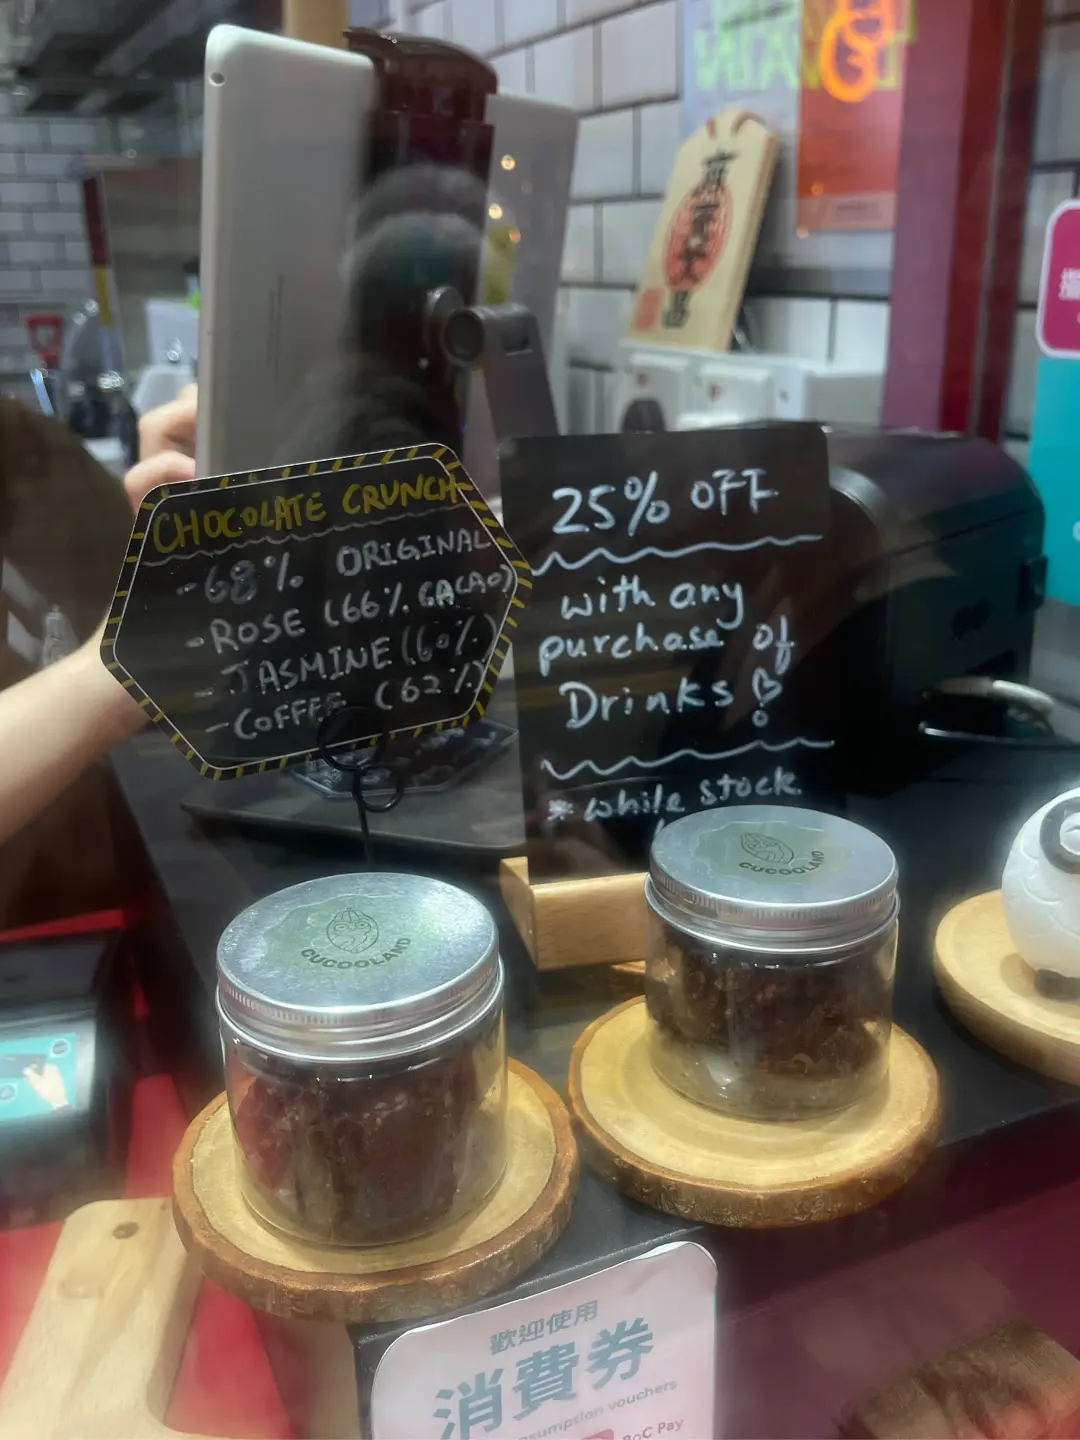 CHOCOLATE CRUNCH
- 68% ORIGINAL
- ROSE (66% CACAO)
- JASMINE (60%)
- COFFEE (62%)
25% OFF
with any
purchase of
Drinks!
* while stock
CUCOOLAND
CUCOOLAND
歡迎使用
消費券
BoC Pay